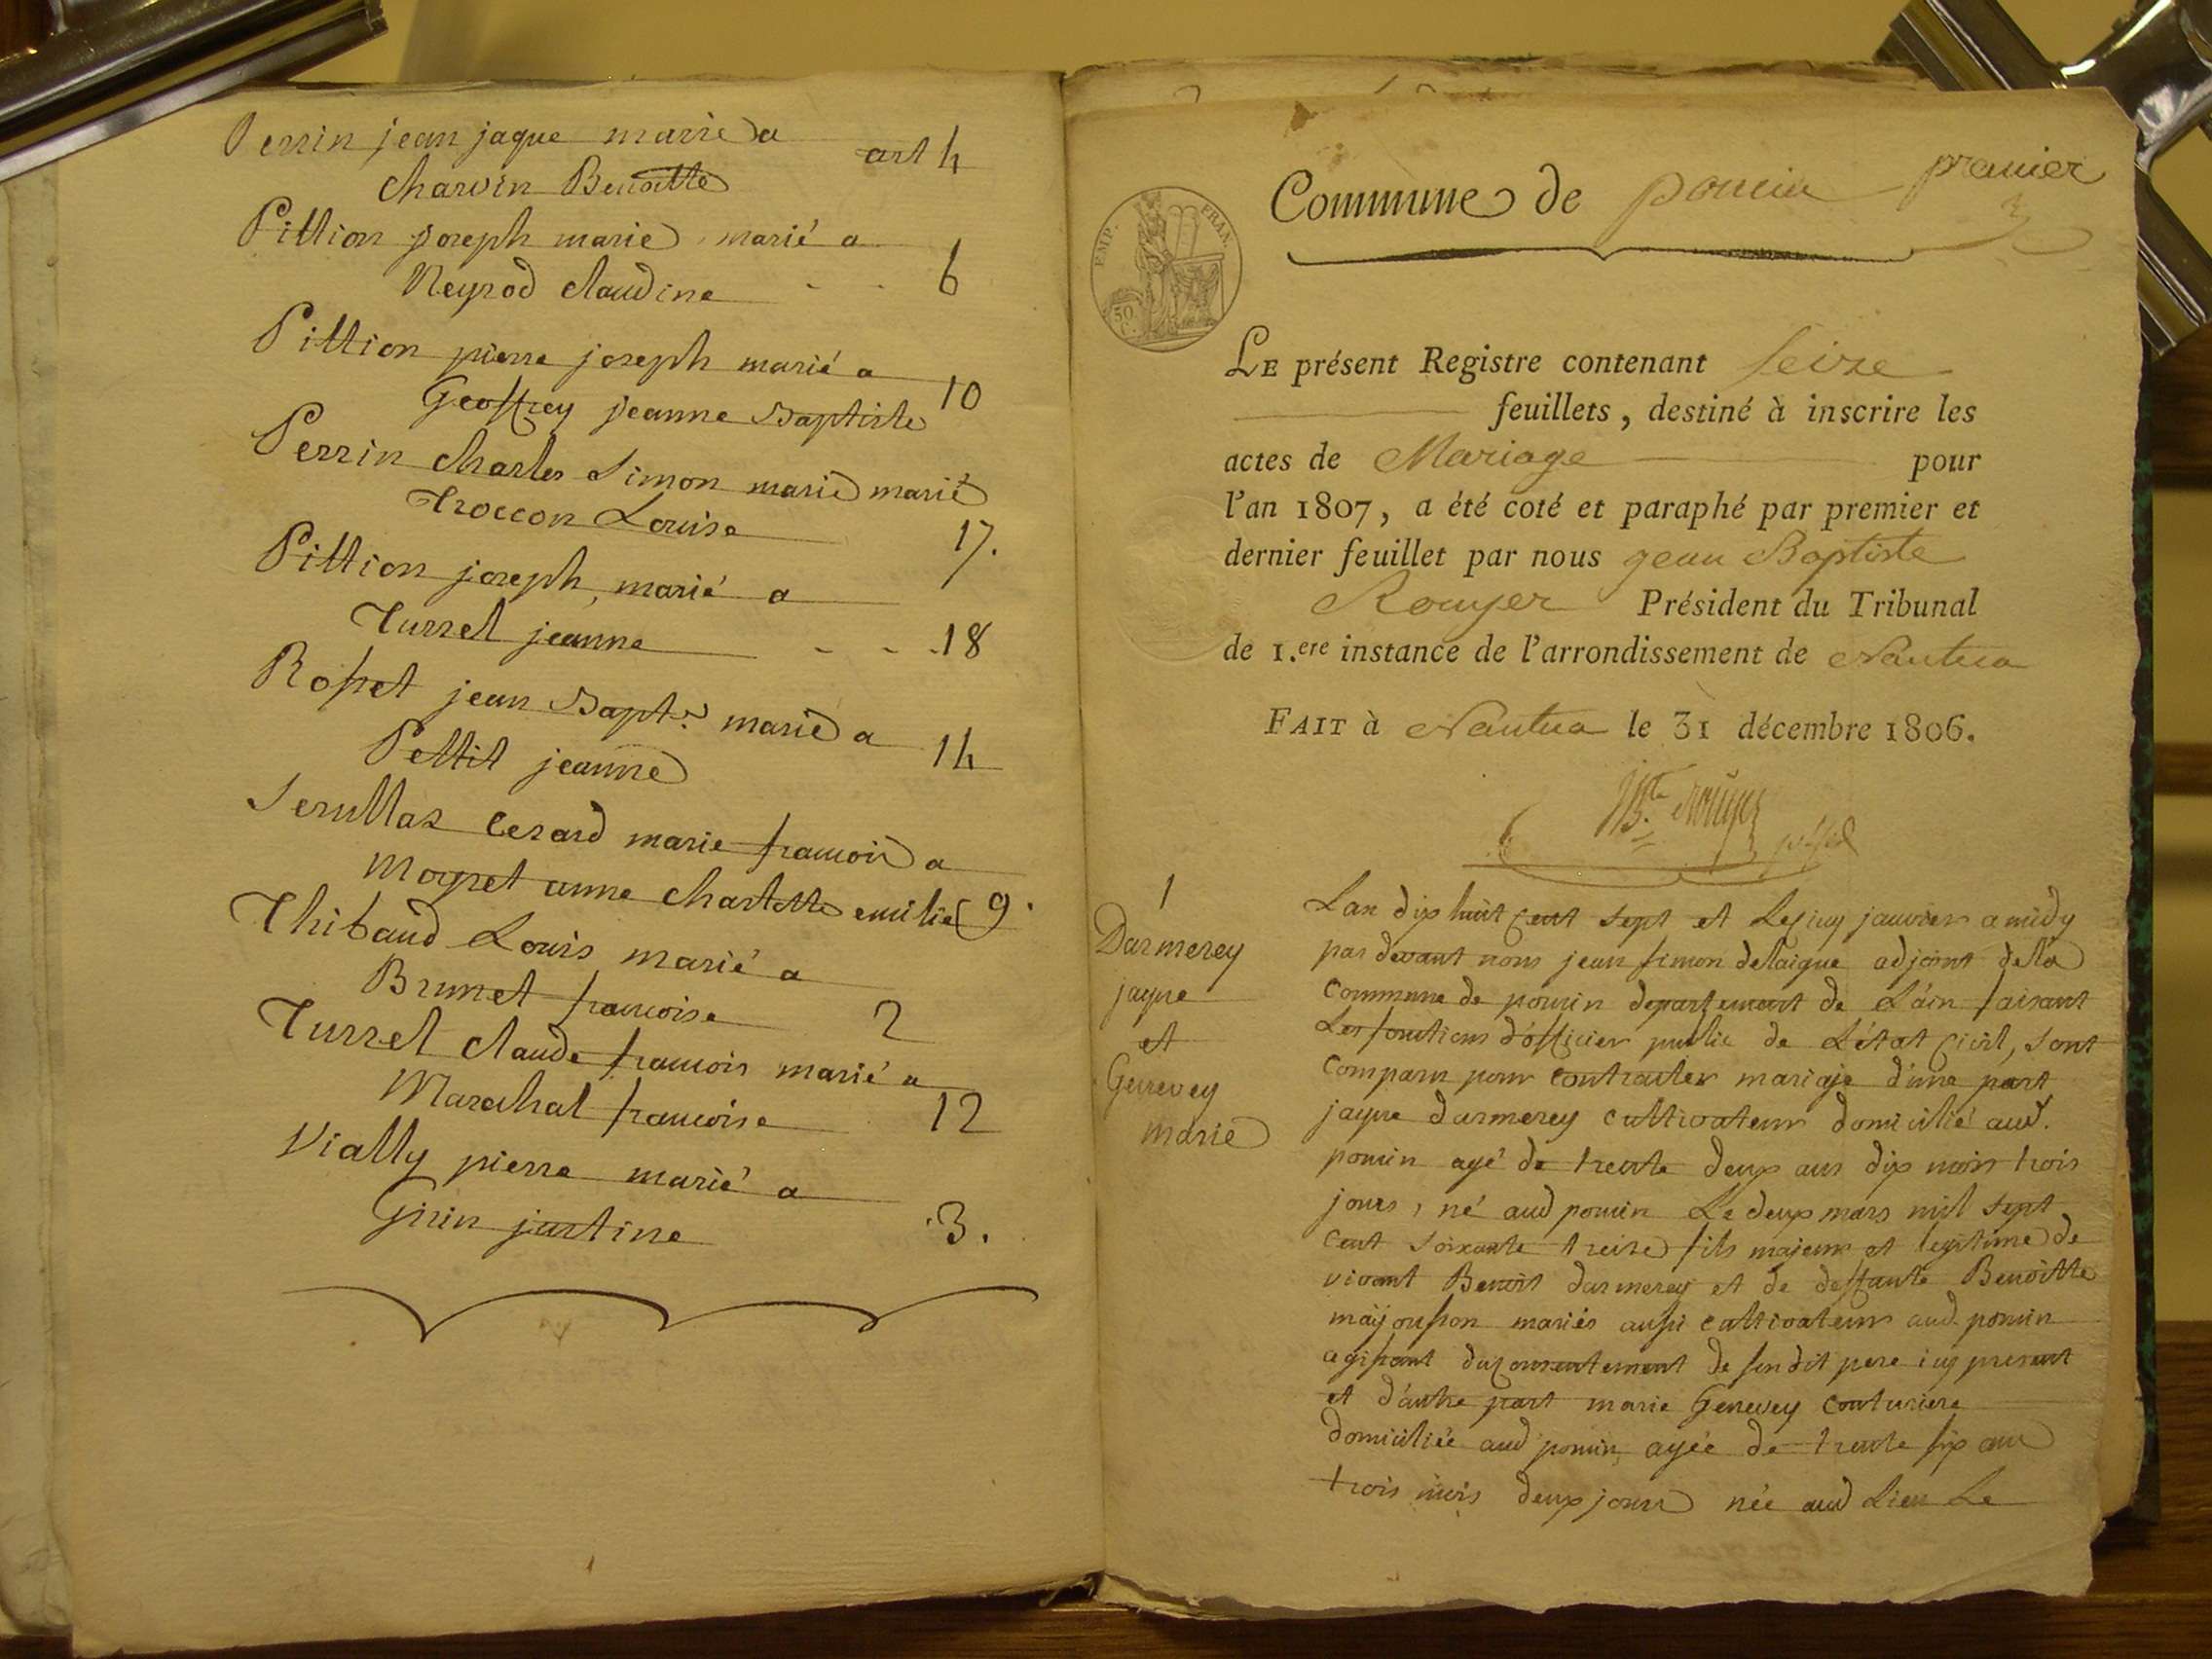 Perrin jean jaque marié a
art 4
Charvin Benoitte
Pittion joseph marie marié a
Neyrod claudine - - 6
Pittion pierre joseph marié a
Geoffrey jeanne Baptiste 10
Perrin charles Simon marie marié
Troccon Louise 17.
Pittion joseph, marié a
Turrel jeanne - - - 18
Rosset jean Bapte marié a
Pettit jeanne 14
Serullas Cesard marie francois a
Moyret anne charlotte emilie 9.
Thibaud Louis marié a
Brunet francoise 2
Turrel claude francois marié a
Marechal francoise 12
Vially pierre marié a
Girin justine .3.
EMP. FRAN.
50 C.
Commune de poncin premier
LE présent Registre contenant seize
feuillets, destiné à inscrire les
actes de Mariage pour
l'an 1807, a été coté et paraphé par premier et
dernier feuillet par nous jean Baptiste
Rouyer Président du Tribunal
de 1.ere instance de l'arrondissement de Nantua
FAIT à Nantua le 31 décembre 1806.
Bte Rouyer
1
Darmerey
jaque
et
Genevey
marie
Lan dix huit cent sept et Le cinq janvier a midy
par devant nous jean simon delaigue adjoint dela
commune de poncin departement de L'ain faisant
Les fonctions d'officier public de L'état civil, sont
comparu pour contracter mariage d'une part
jaque darmerey cultivateur domicilié aud.
poncin agé de trente deux ans dix mois trois
jours, né aud poncin Le deux mars mil sept
cent soixante treize fils majeur et legitime de
vivant Benoit darmerey et de deffante Benoitte
mariés aussi cultivateurs aud. poncin
agissant du consentement de son dit pere icy present
et d'autre part marie Genevey couturiere
domiciliée aud poncin, agée de trente six ans
trois mois deux jours née aud Lieu Le